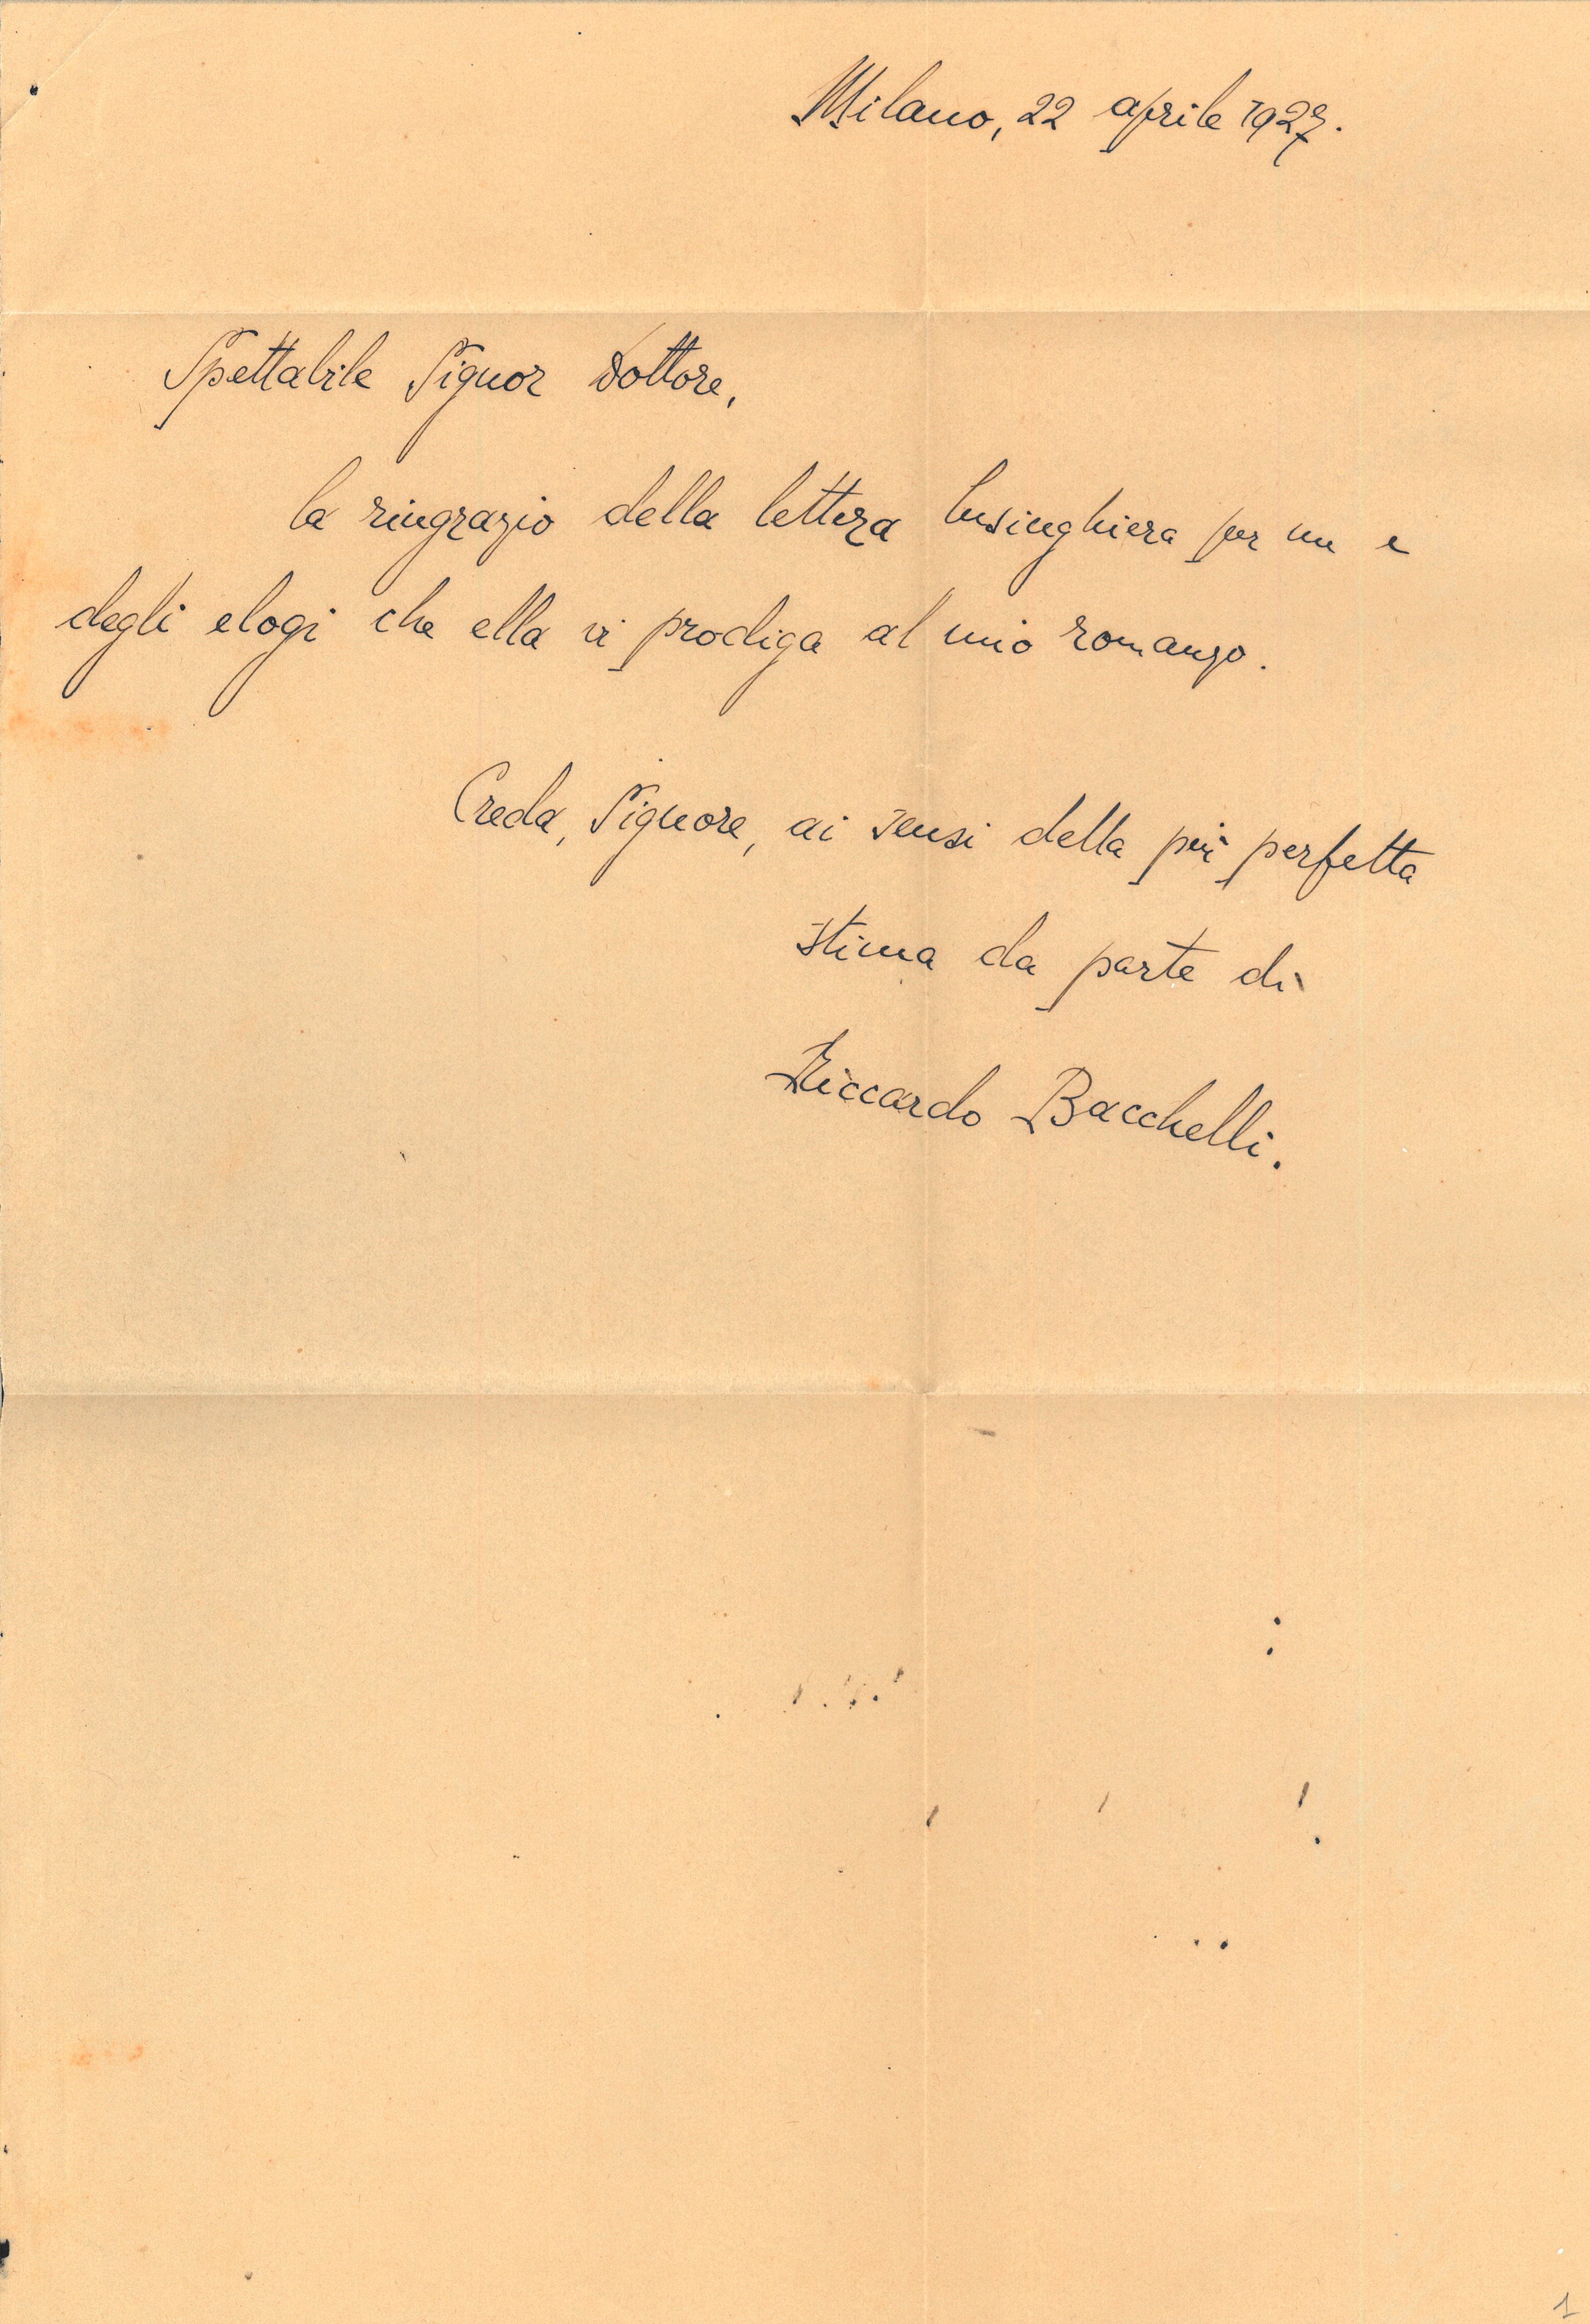 Milano, 22 aprile 1927.
Spettabile Signor Dottore,
la ringrazio della lettera lusinghiera per me e
degli elogi che ella vi prodiga al mio romanzo.
Creda, Signore, ai sensi della più perfetta
stima da parte di
Riccardo Bacchelli.
1